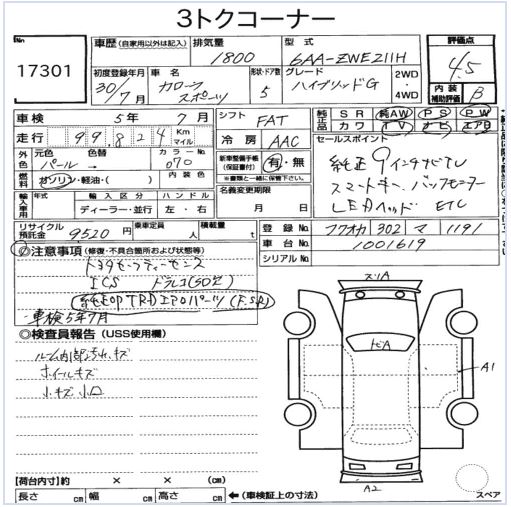 3トクコーナー
No 17301
車歴 (自家用以外は記入) 排気量 1800 型式 6AA-ZWE211H 評価点 4.5
初度登録年月 30/7月 車名 カローラスポーツ 形状・ドア数 5 グレード ハイブリッドG 2WD 4WD 内装補助評価 B
車検 5年 7月 シフト FAT 純正品 SR 純AW PS PW
カワ TV ナビ エアB
走行 99,824 Km マイル 冷房 AAC セールスポイント
外色 元色 パール 色替 → カラーNo. 070 新車整備手帳(保証書付) 有・無
※書類と一緒に保管下さい。
純正9インチナビTV
燃料 ガソリン・軽油・( ) 内装色 スマートキー バックモニター
名義変更期限 月 日 LEDヘッド ETC
輸入車用 年式 輸入区分 ディーラー・並行 ハンドル 左・右
リサイクル預託金 9520円 乗車定員 人 積載量 t 登録 フクオカ 302 マ 1191
車台 1001619
シリアルNo.
注意事項 (修復・不具合箇所および状態等)
トヨタセーフティーセンス
ICS ドラレコ
純正OP TRDエアロパーツ (F.S.R)
車検5年7月
検査員報告 (USS使用欄)
ルーム内部汚れ、キズ
ホイールキズ
小キズ 小凹
A1
A2
【荷台内寸】約 × × cm
長さ cm 幅 cm 高さ cm ←(車検証上の寸法) スペア